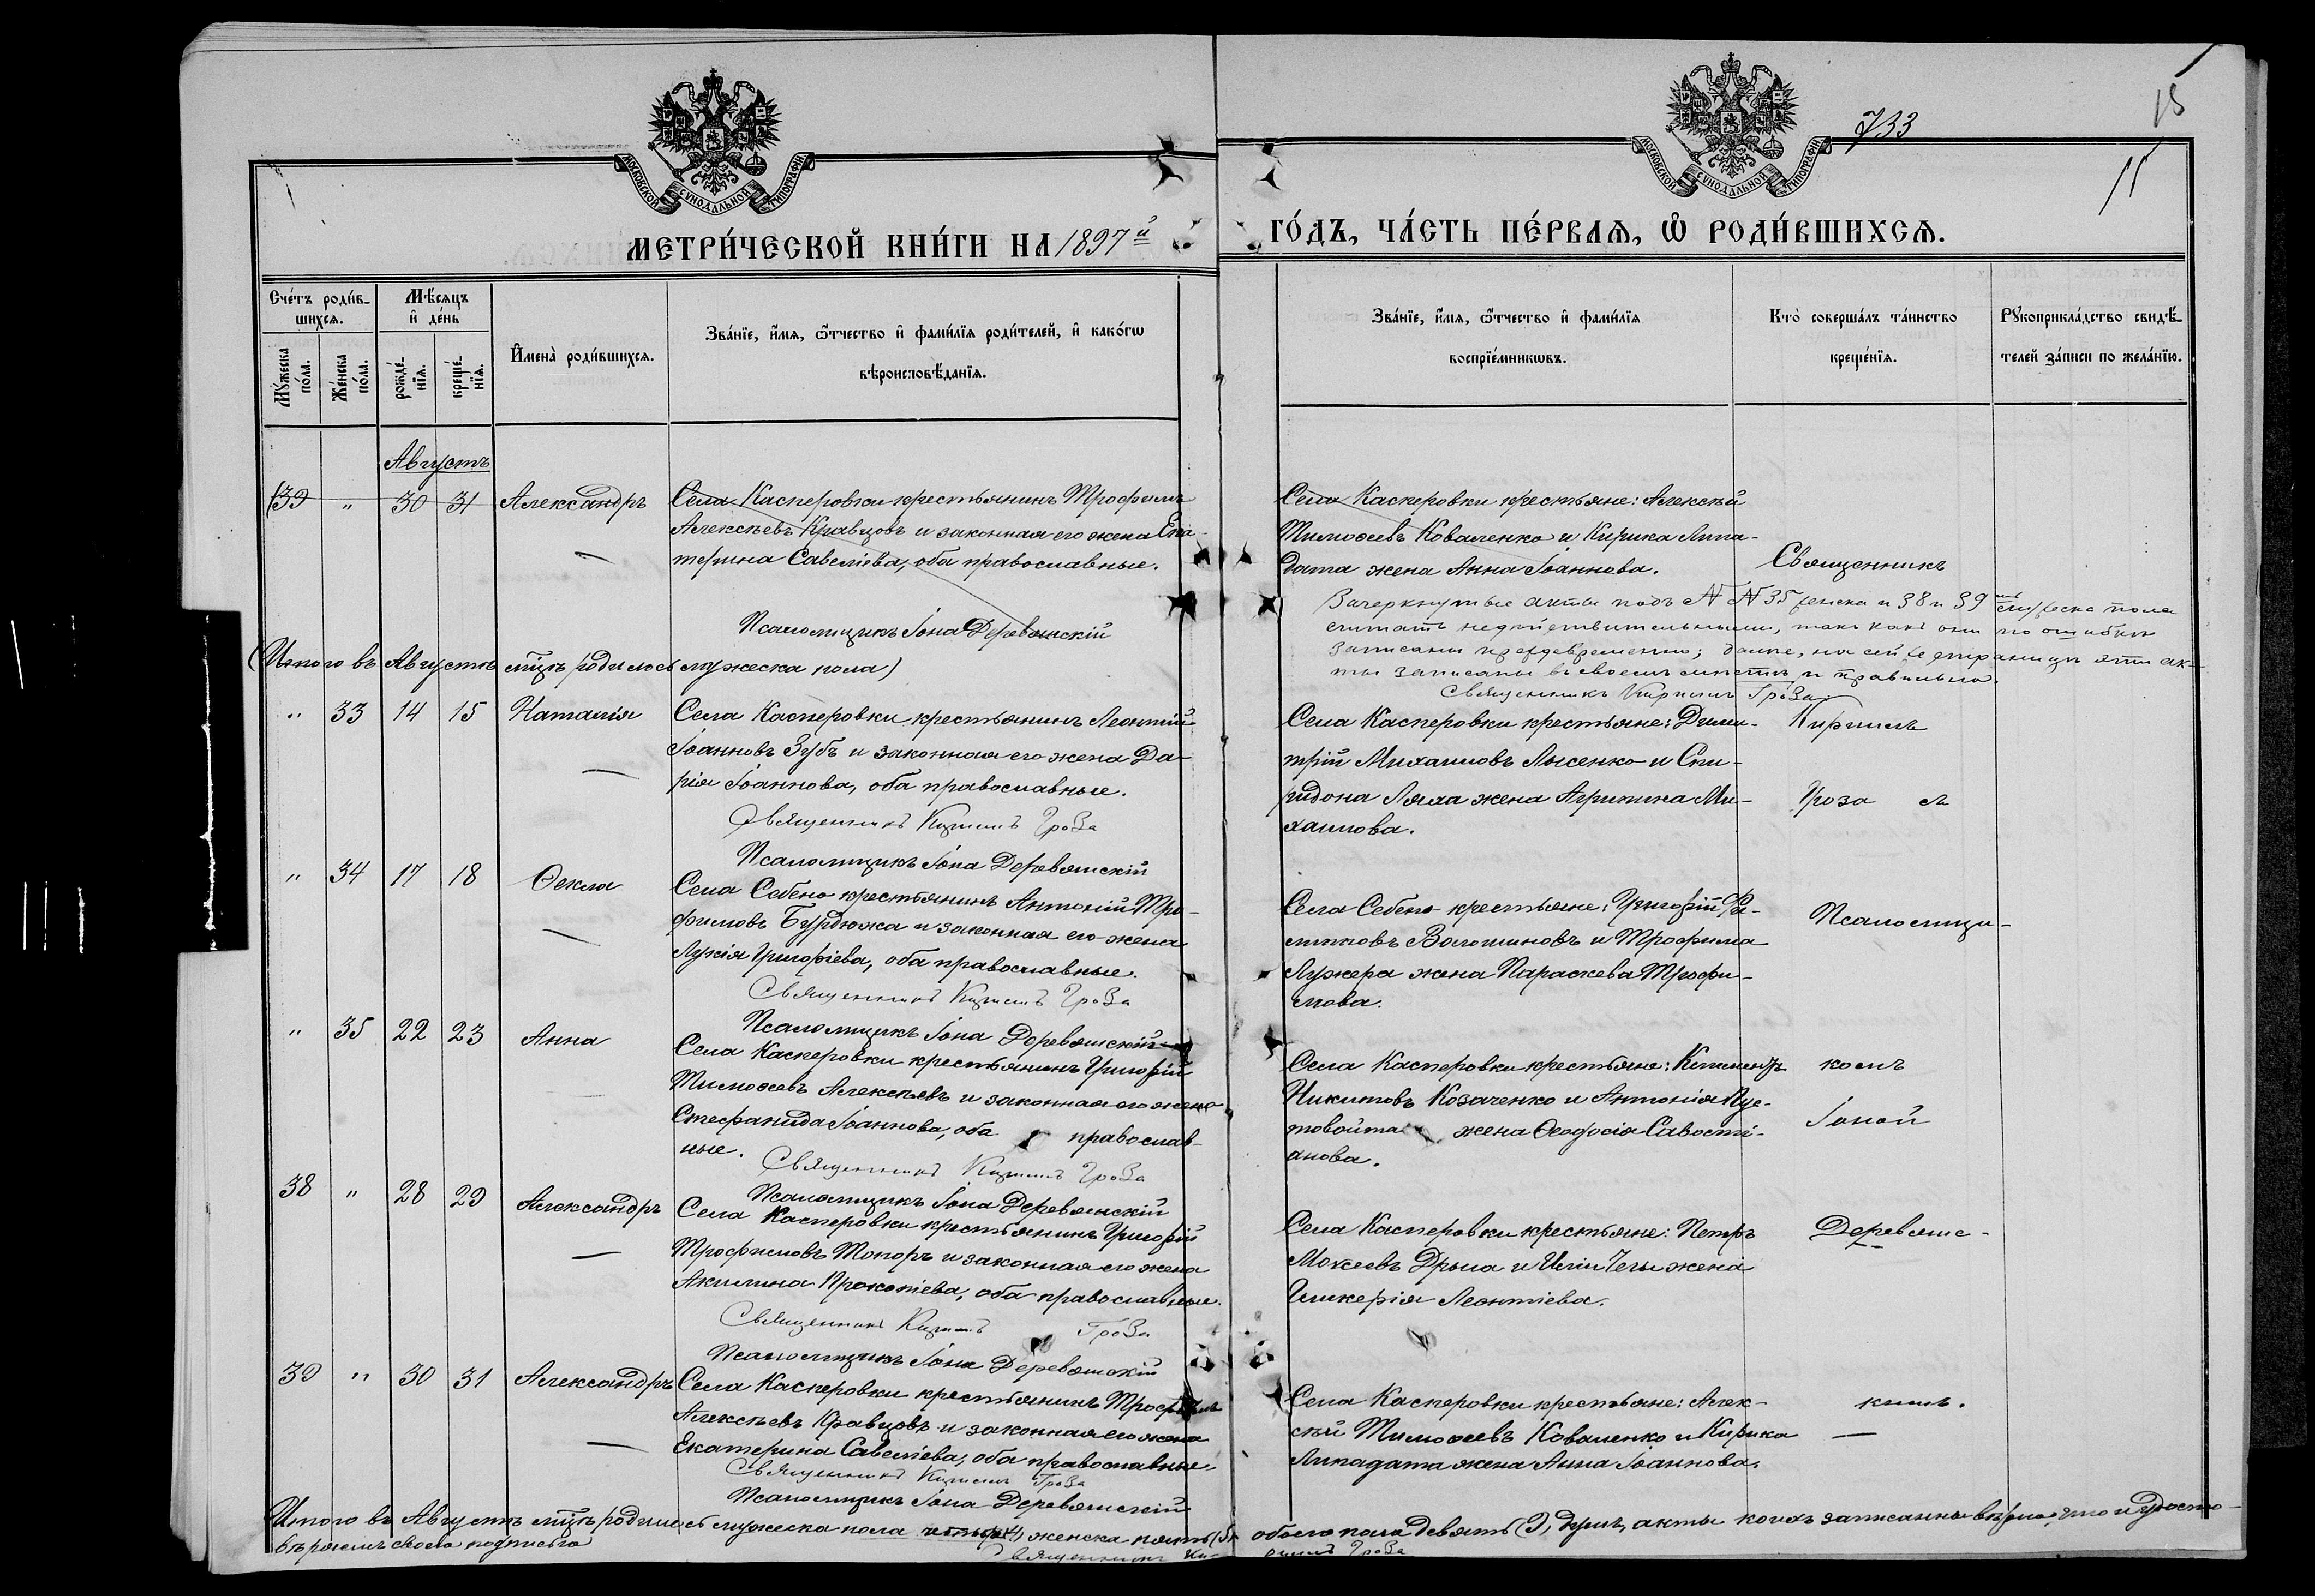 733
15
11
МОСКОВСКОЙ СѴНОДАЛЬНОЙ ТИПОГРАФІИ
МОСКОВСКОЙ СѴНОДАЛЬНОЙ ТИПОГРАФІИ
МЕТРИ́ЧЕСКОЙ КНИ́ГИ НА 1897й
ГО́ДЪ, ЧА́СТЬ ПЕ́РВАѦ, Ѽ РОДИ́ВШИХСѦ.
Сче́тъ роди́в-
шихсѧ.
Мѣ́сѧцъ
и҆ де́нь
Мꙋ́жеска
по́ла.
Же́нска
по́ла.
рожде́-
нїѧ.
креще́-
нїѧ.
И҆мена̀ роди́вшихсѧ.
Зва́нїе, и҆́мѧ, ѻ҆́тчество и҆ фами́лїѧ роди́телей, и҆ како́гѡ
вѣроисповѣ́данїѧ.
Зва́нїе, и҆́мѧ, ѻ҆́тчество и҆ фами́лїѧ
воспрїе́мникѡвъ.
Кто̀ соверша́лъ та́инство
креще́нїѧ.
Рꙋкоприкла́дство свидѣ́-
телей за́писи по жела́нїю.
Августъ
(39 " 30 31 Александръ
Села Касперовки крестьянинъ Трофимъ
Алексѣевъ Кравцовъ и законная его жена Ека-
терина Савелiева, оба православные.
Псаломщикъ Іона Деревянскій
Села Касперовки крестьяне: Алексѣй
Тимоѳеевъ Коваленко и Кирика Липа-
дата жена Анна Іоаннова.
Священникъ
Зачеркнутые акты подъ №№ 35 женска и 38 и 39 мужеска пола
считать недѣйствительными, такъ какъ они по ошибкѣ
записаны преждевременно; далѣе, на сей же страницѣ эти ак-
ты записаны въ своемъ мѣстѣ и правильно.
Священникъ Кириллъ Гроза
(Итого въ Августѣ мцѣ родилось мужеска пола)
" 33 14 15 Наталія
Села Касперовки крестьянинъ Леонтій
Іоанновъ Зубъ и законная его жена Да-
рія Іоаннова, оба православные.
Священникъ Кириллъ Гроза
Псаломщикъ Іона Деревянскій
Села Касперовки крестьяне: Дими-
трій Михаиловъ Лысенко и Спи-
ридона Ляха жена Агрипина Ми-
хаилова.
Кириллъ
Гроза съ
" 34 17 18 Ѳекла
Села Себено крестьянинъ Антоній Тро-
фимовъ Бурдюжа и законная его жена
Лукія Григоріева, оба православные.
Священникъ Кириллъ Гроза
Псаломщикъ Іона Деревянскій
Села Себено крестьяне: Григорій Фи-
липповъ Волошиновъ и Трофима
Лужера жена Параскева Трофи-
мова.
Псаломщи-
" 35 22 23 Анна
Села Касперовки крестьянинъ Григорій
Тимоѳеевъ Алексѣевъ и законная его жена
Стефанида Іоаннова, оба православ-
ные.
Священникъ Кириллъ Гроза
Псаломщикъ Іона Деревянскій
Села Касперовки крестьяне: Климентъ
Никитовъ Козаченко и Антонія Пус-
товойта жена Ѳеодосія Савасті-
анова.
комъ
Іоной
38 " 28 29 Александръ
Села Касперовки крестьянинъ Григорій
Трофимовъ Топоръ и законная его жена
Акилина Прокопіева, оба православные.
Священникъ Кириллъ Гроза
Псаломщикъ Іона Деревянскій
Села Касперовки крестьяне: Петръ
Моѵсеевъ Дрыга и Иліи Чечы жена
Гликерія Леонтіева.
Деревянс-
39 " 30 31 Александръ
Села Касперовки крестьянинъ Трофимъ
Алексѣевъ Кравцовъ и законная его жена
Екатерина Савеліева, оба православные
Священникъ Кириллъ Гроза
Псаломщикъ Іона Деревянскій
Села Касперовки крестьяне: Алек-
сѣй Тимоѳеевъ Коваленко и Кирика
Липадата жена Анна Іоаннова.
кимъ.
Итого въ Августѣ мцѣ родилось мужеска пола четыре (4) женска пять (5) обоего пола девять (9) душъ, акты коихъ записаны вѣрно, что и удосто-
вѣряемъ своею подписью
Священникъ Кириллъ Гроза